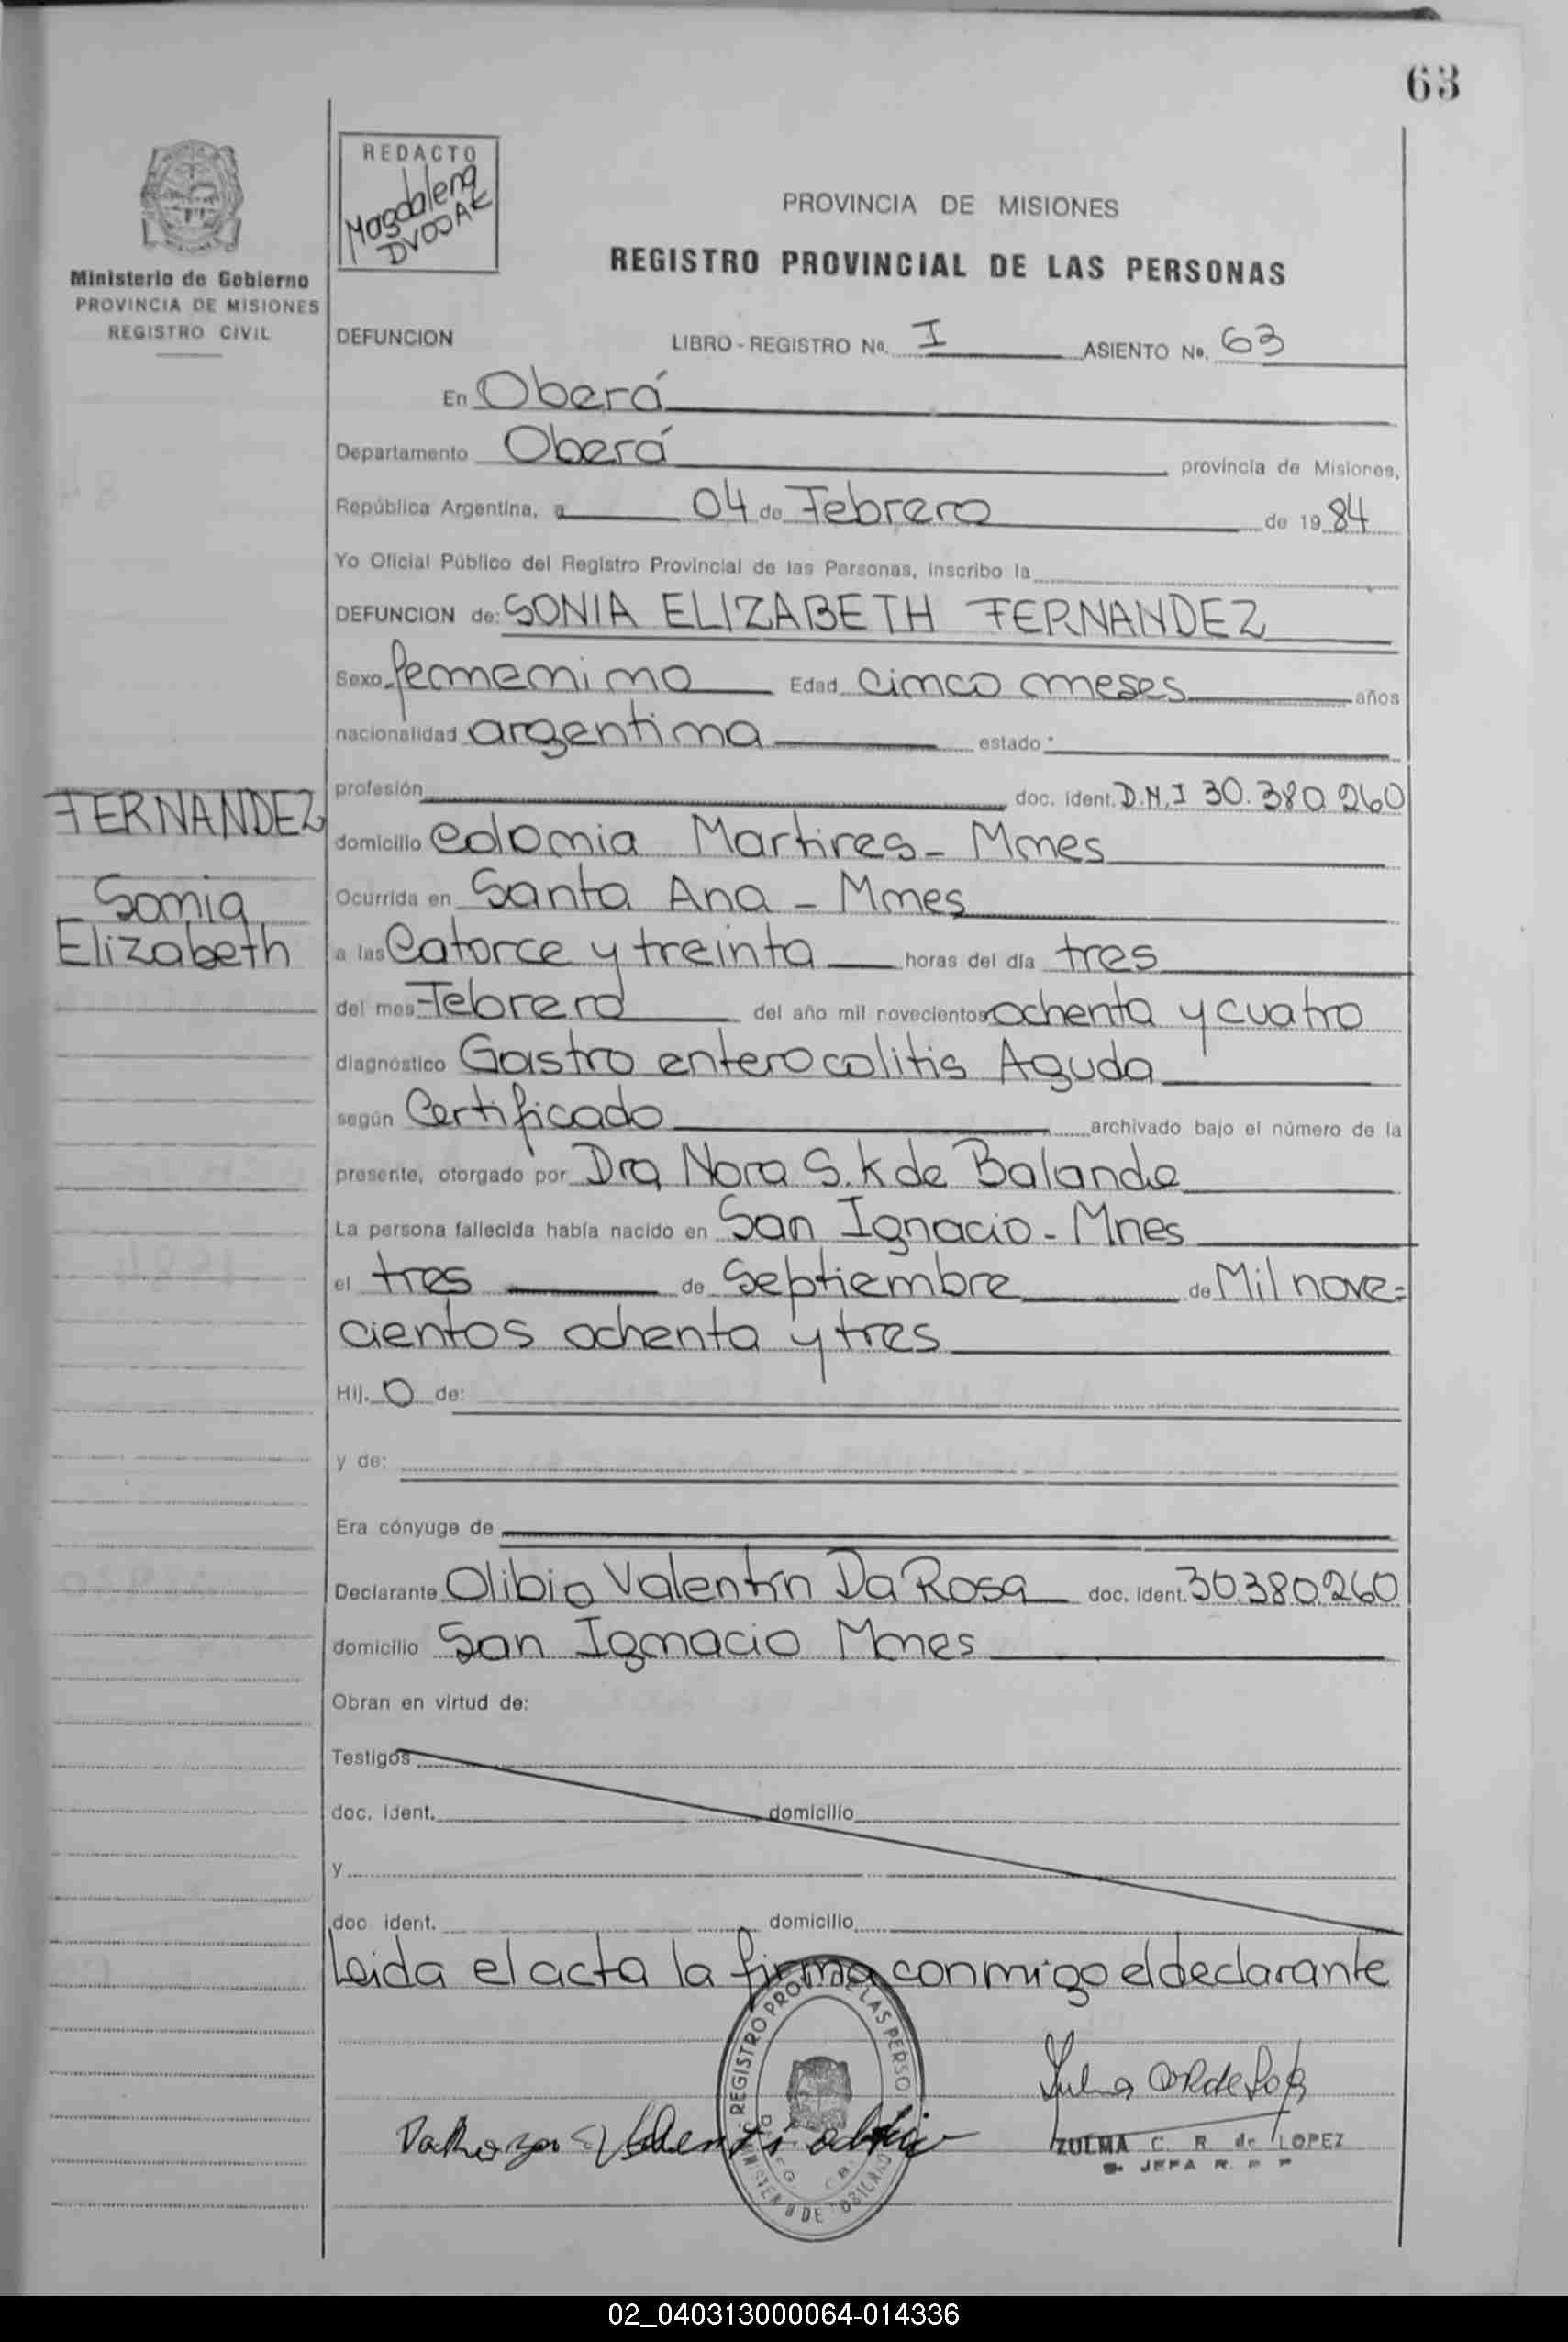 63
REDACTO
Magdalena
DVOJAK
Ministerio de Gobierno
PROVINCIA DE MISIONES
REGISTRO CIVIL
PROVINCIA DE MISIONES
REGISTRO PROVINCIAL DE LAS PERSONAS
DEFUNCION LIBRO-REGISTRO Nº. I ASIENTO Nº. 63
En Oberá
Departamento Oberá provincia de Misiones,
República Argentina, a 04 de Febrero de 1984
Yo Oficial Público del Registro Provincial de las Personas, inscribo la
DEFUNCION de: SONIA ELIZABETH FERNANDEZ
Sexo femenino Edad cinco meses años
nacionalidad argentina estado
profesión doc. ident. D.N.I 30.380.260
FERNANDEZ
Sonia
Elizabeth
domicilio Colonia Martires - Mnes
Ocurrida en Santa Ana - Mnes
a las Catorce y treinta horas del día tres
del mes Febrero del año mil novecientos ochenta y cuatro
diagnóstico Gastro enterocolitis Aguda
según Certificado archivado bajo el número de la
presente, otorgado por Dra Nora S. K de Balande
La persona fallecida había nacido en San Ignacio - Mnes
el tres de Septiembre de Mil nove=
cientos ochenta y tres
Hij. O de:
y de:
Era cónyuge de
Declarante Olibio Valentín Da Rosa doc. ident. 30.380.260
domicilio San Ignacio Mnes
Obran en virtud de:
Testigos
doc. ident. domicilio
y
doc ident. domicilio
Leida el acta la firma conmigo el declarante
REGISTRO PROV DE LAS PERSO
ZULMA C. R. de LOPEZ
JEFA R. P P
02_040313000064-014336